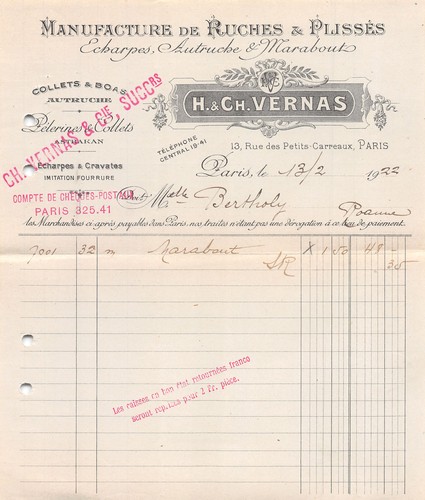 MANUFACTURE DE RUCHES & PLISSÉS
Echarpes, Autruche & Marabout
COLLETS & BOAS
AUTRUCHE
Pèlerines & Collets
ASTRAKAN
Echarpes & Cravates
IMITATION FOURRURE
H. & CH. VERNAS
TÉLÉPHONE
CENTRAL 19-41
13, Rue des Petits-Carreaux, PARIS
CH. VERNAS & CIE, SUCCRS
COMPTE DE CHÈQUES-POSTAUX
PARIS 325.41
Paris, le 13/2 1922
Doit: Melle Bertholy
Roanne
les Marchandises ci après payables dans Paris, nos traites n'étant pas une dérogation à ce lieu de paiement.
7001 32 m Marabout X 1 50 48 -
35
Les caisses en bon état retournées franco
seront reprises pour 2 Fr. pièce.